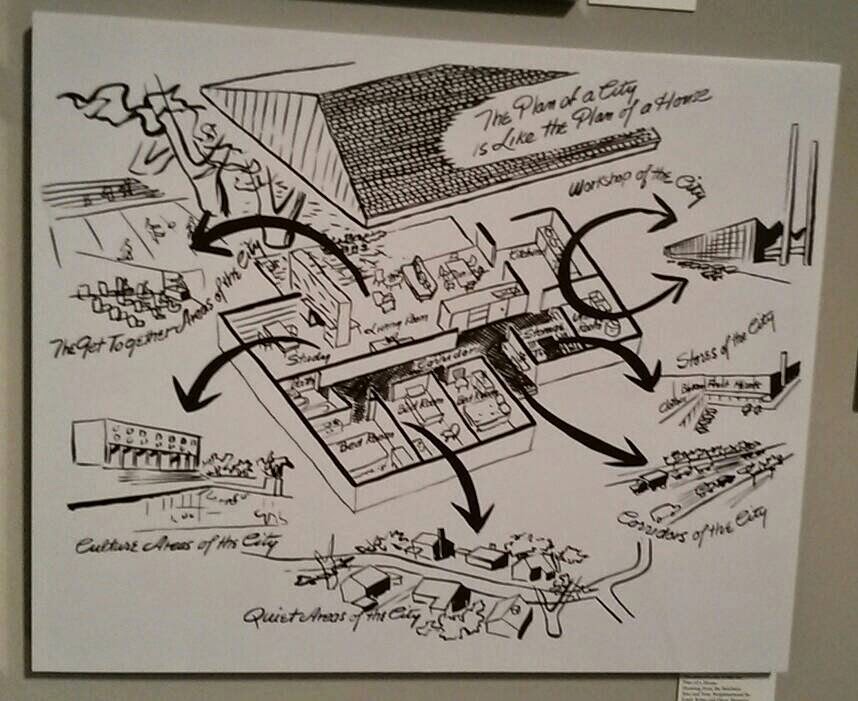 The Plan of a City
is Like the Plan of a House
Workshop of the City
The Get Together Areas of the City
Living Room
Kitchen
Study
Corridor
Storage
Bath
Bed Room
Bed Room
Bed Room
Stores of the City
Culture Areas of the City
Corridors of the City
Quiet Areas of the City